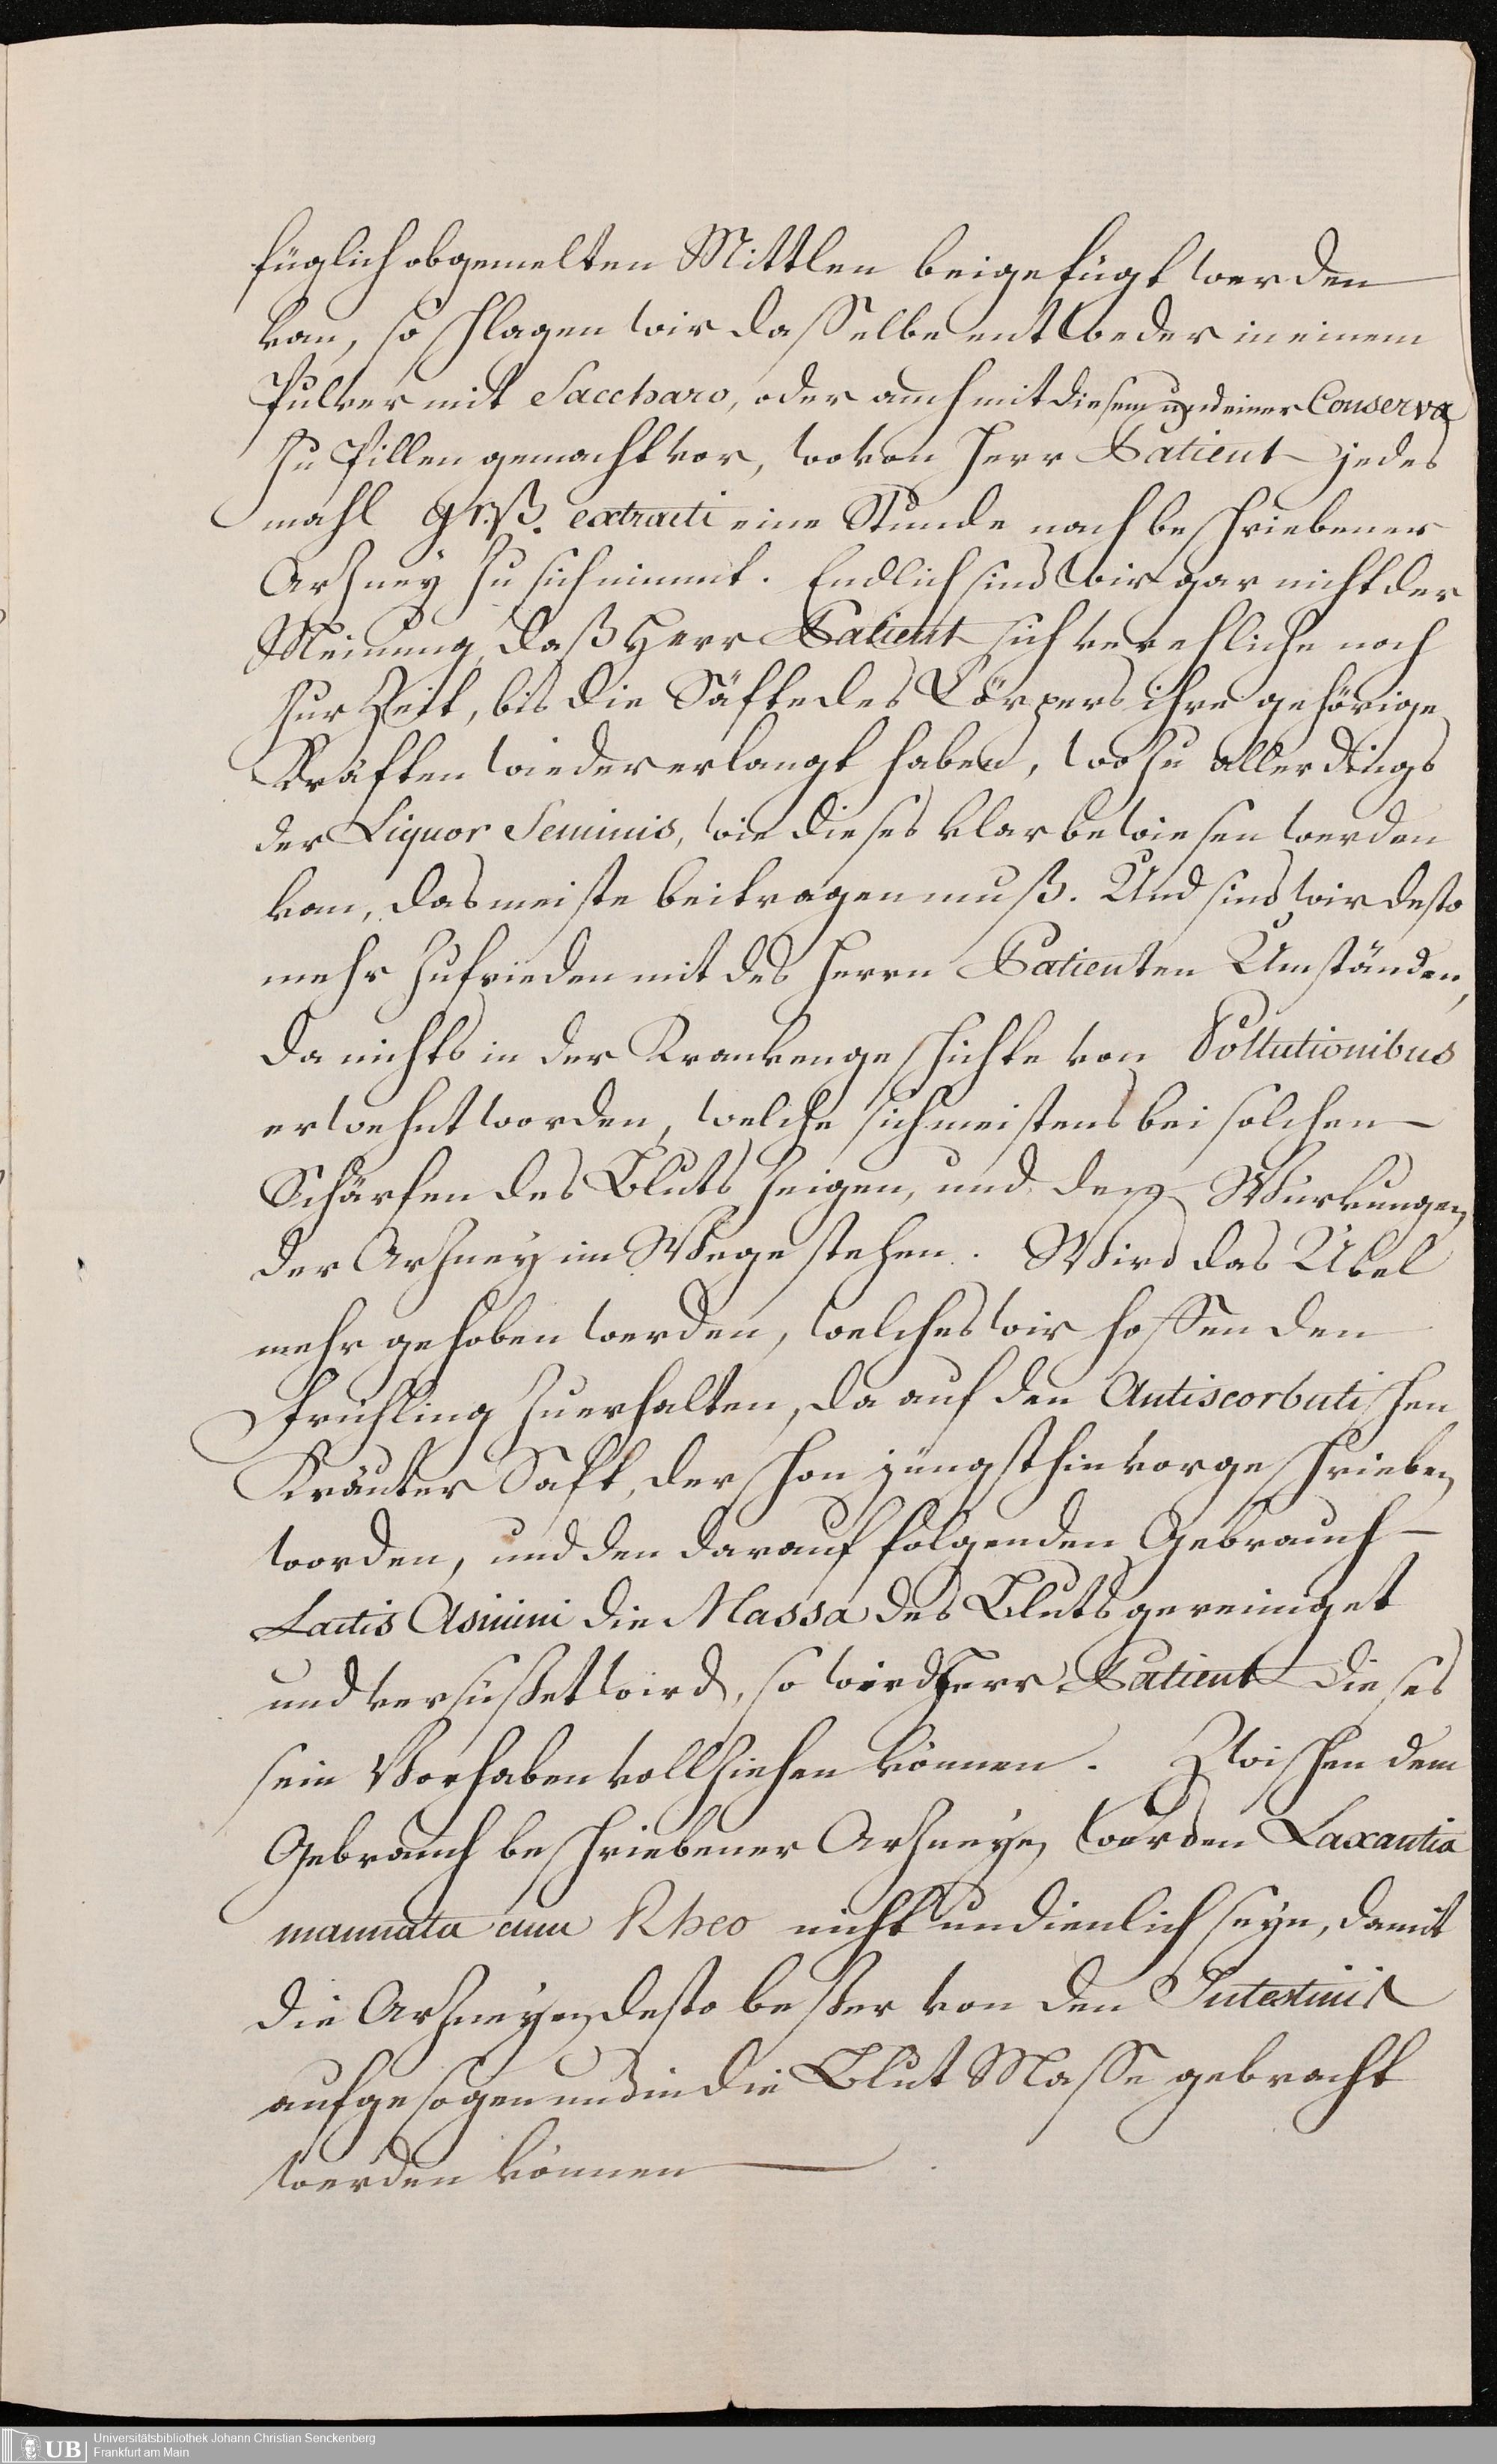 füglich obgemelten Mittlen beigefügt werden
kan, so schlagen wir dasselbe entweder in einem
Pulver mit Saccharo, oder auch mit diesem und einer Conserva
zu Pillen gemacht vor, wovon Herr Patient jedes
mahl gr.ß. extracti eine Stunde nach beschriebener
Arzney zu sich nimmt. Endlich sind wir gar nicht der
Meinung, daß Herr Patient sich verehliche noch
zur Zeit, bis die Säfte des Cörpers ihre gehörige
Kräften wieder erlangt haben, wozu allerdings
der Liquor Seminis, wie dieses klar bewiesen werden
kan, das meiste beitragen muß. Und sind wir desto
mehr zufrieden mit des Herrn Patienten Umständen,
da nichts in der Krankengeschichte von Pollutionibus
erwehnt worden, welche sich meistens bei solchen
Schärfen des Bluts zeigen, und den Würkungen
der Arzney im Wege stehen. Wird das Übel
mehr gehoben werden, welches wir hoffen den
Frühling zu erhalten, da auf den Antiscorbutischen
Kräuter Saft, der schon jüngsthin vorgeschrieben
worden, und den darauf folgenden Gebrauch
Lactis Asinini die Massa des Bluts gereiniget
und versüßet wird, so wird Herr Patient dieses
sein Vorhaben vollziehen können. Zwischen dem
Gebrauch beschriebener Arzneyen werden Laxantia
mannata cum Rheo nicht undienlich seyn, damit
die Arzneyen desto besser von den Intestinis
aufgesogen und in die Blut Masse gebracht
werden können
UB
Universitätsbibliothek Johann Christian Senckenberg
Frankfurt am Main